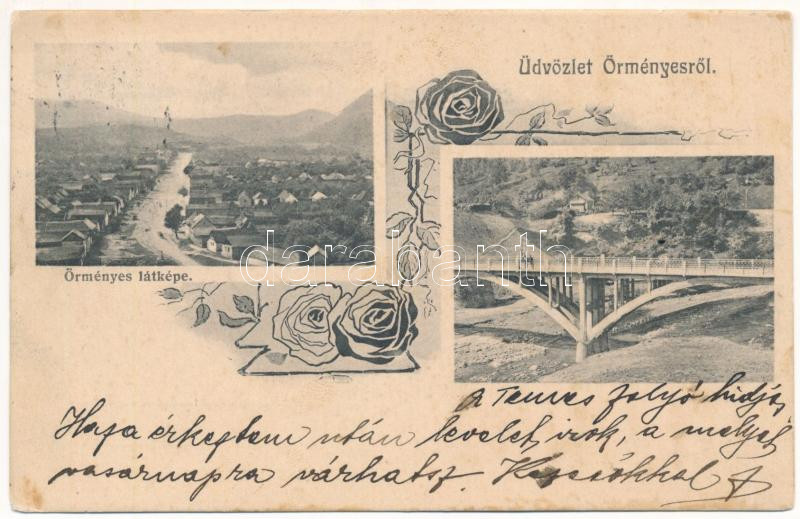 Üdvözlet Örményesről.
Örményes látképe.
darabanth
a Temes folyó hidja,
Haza érkeztem után levelet irok, a melyet
vasárnapra várhatsz.